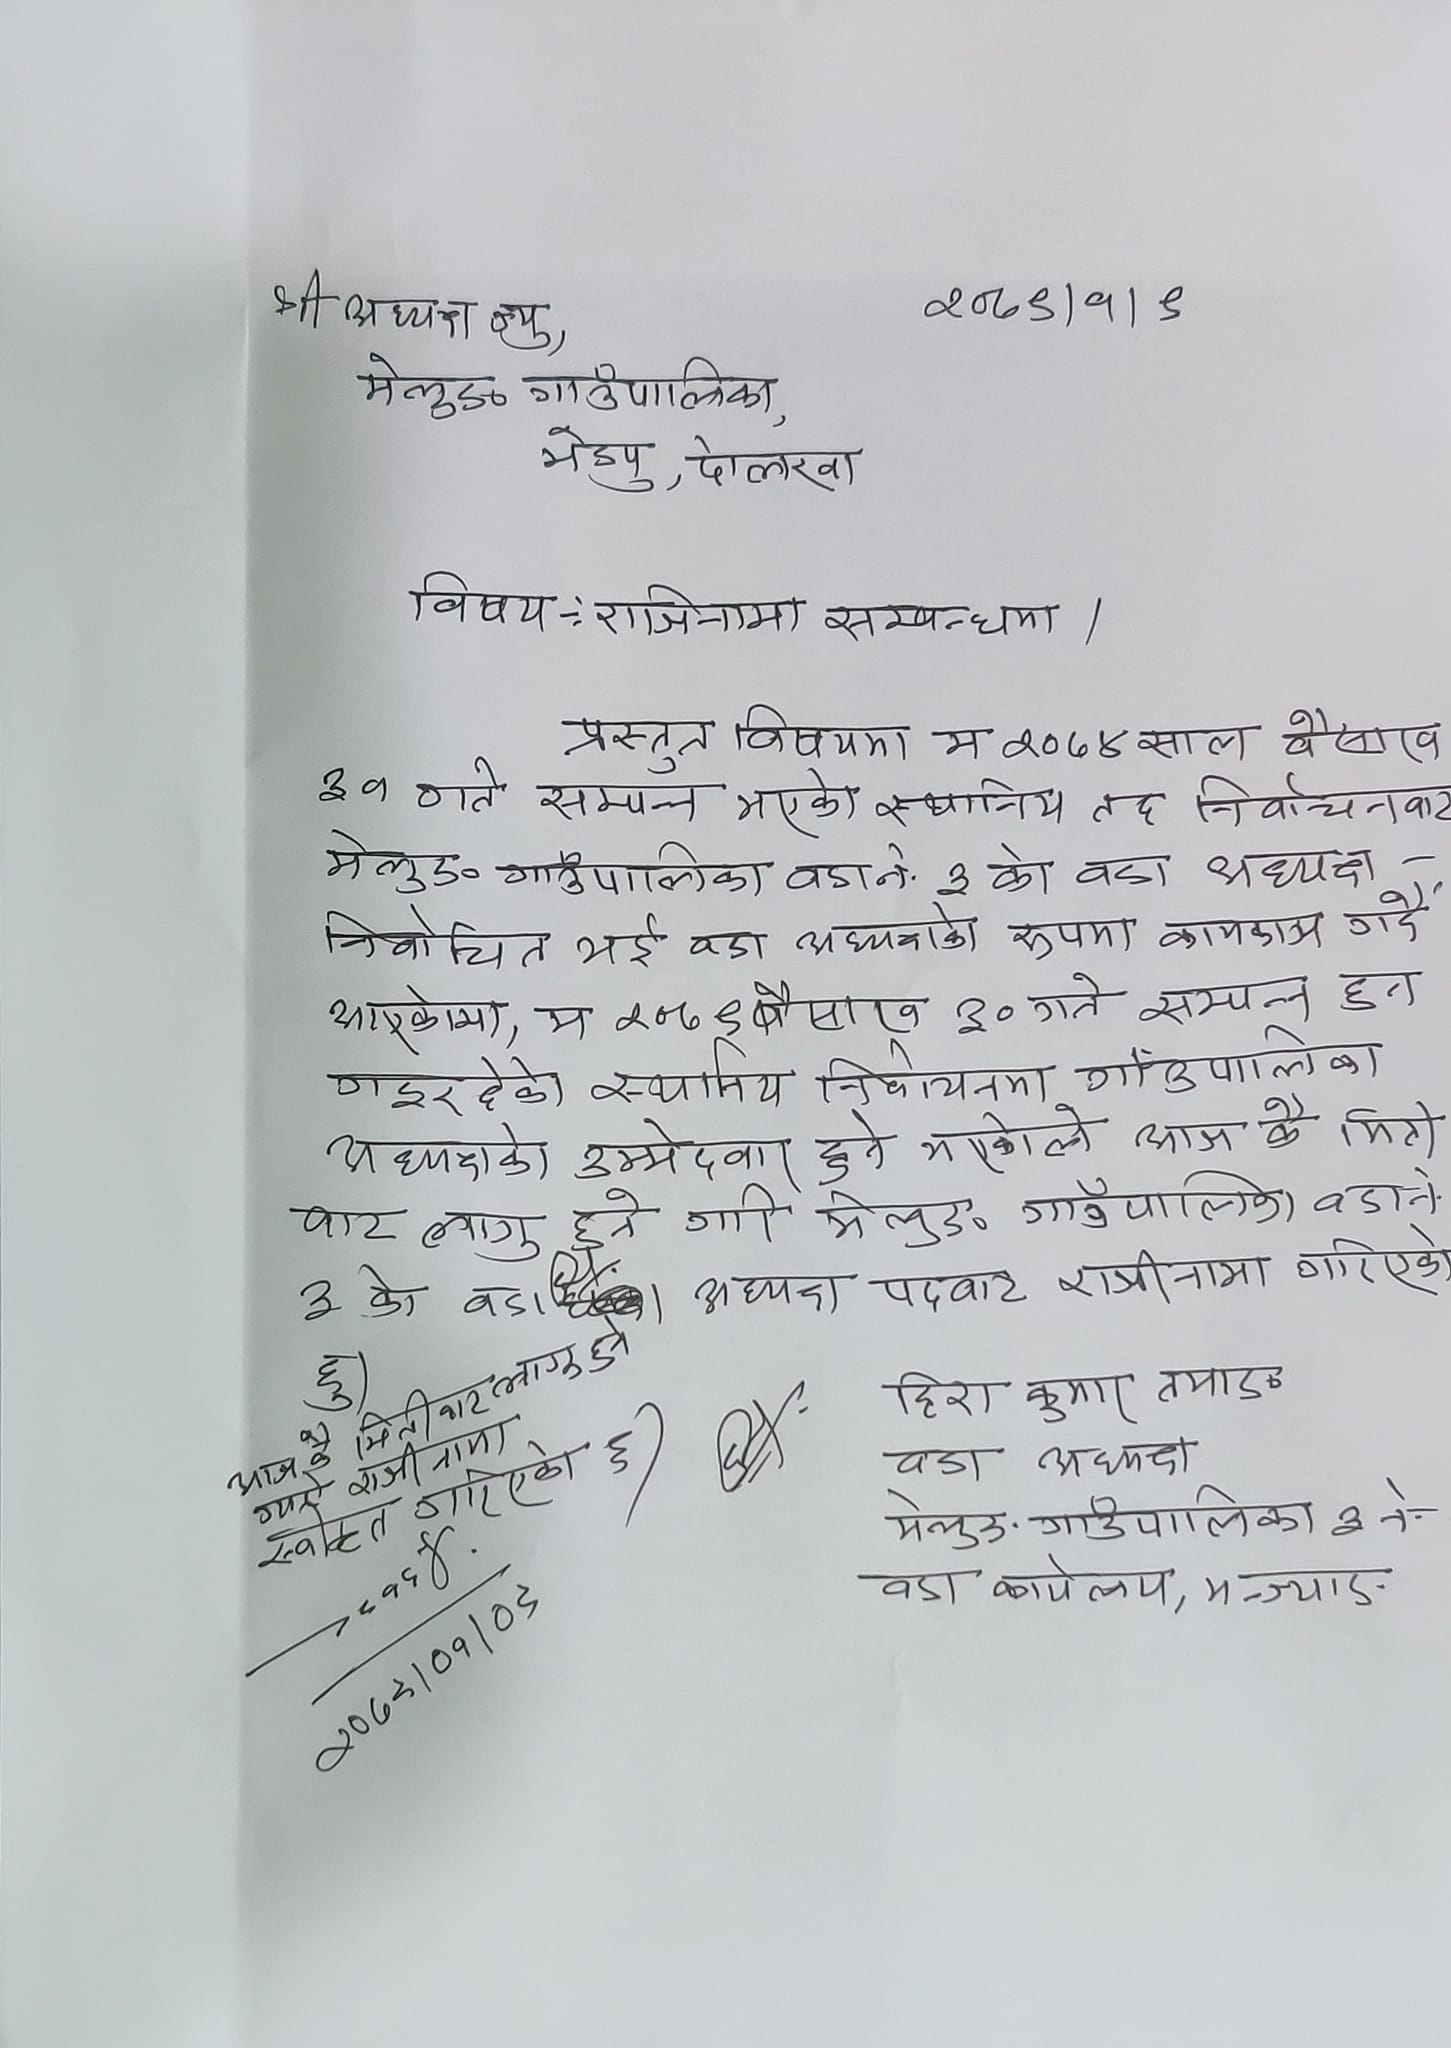 श्री अध्यक्ष ज्यु,
२०७९।१।९
मेलुङ गाउँपालिका,
भेडपु, दोलखा
विषय :- राजिनामा सम्बन्धमा ।
प्रस्तुत विषयमा म २०७४ साल वैशाख
३१ गते सम्पन्न भएको स्थानिय तह निर्वाचनबाट
मेलुङ गाउँपालिका वडा नं. ३ को वडा अध्यक्ष -
निर्वाचित भई वडा अध्यक्षको रूपमा कामकाज गर्दै
आएकोमा, म २०७९ वैशाख ३० गते सम्पन्न हुन
गइरहेको स्थानिय निर्वाचनमा गाँउपालिका
अध्यक्षको उम्मेदवार हुने भएकोले आज कै मिती
बाट लागु हुने गरी मेलुङ गाउँपालिका वडा नं.
३ को वडा अध्यक्ष पदबाट राजीनामा गरिएको
छ।
हिरा कुमार तमाङ
वडा अध्यक्ष
मेलुङ गाउँपालिका ३ नं.
वडा कार्यालय,
आज कै मिती बाट लागु हुने
राजीनामा
स्वीकृत गरिएको छ।
२०७९/०१/०९